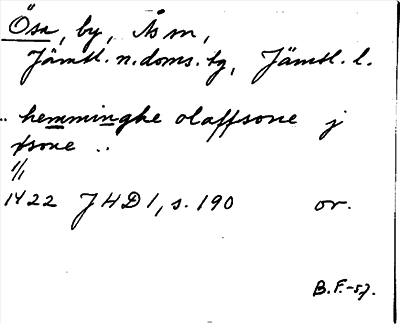 Ösa, by, Ås sn,
Jämtl. n. doms. tg, Jämtl. l.
.. hemminghe olaffsone j
sone ..
1/1
1422 JHD 1, s. 190 or.
B.F.-57.